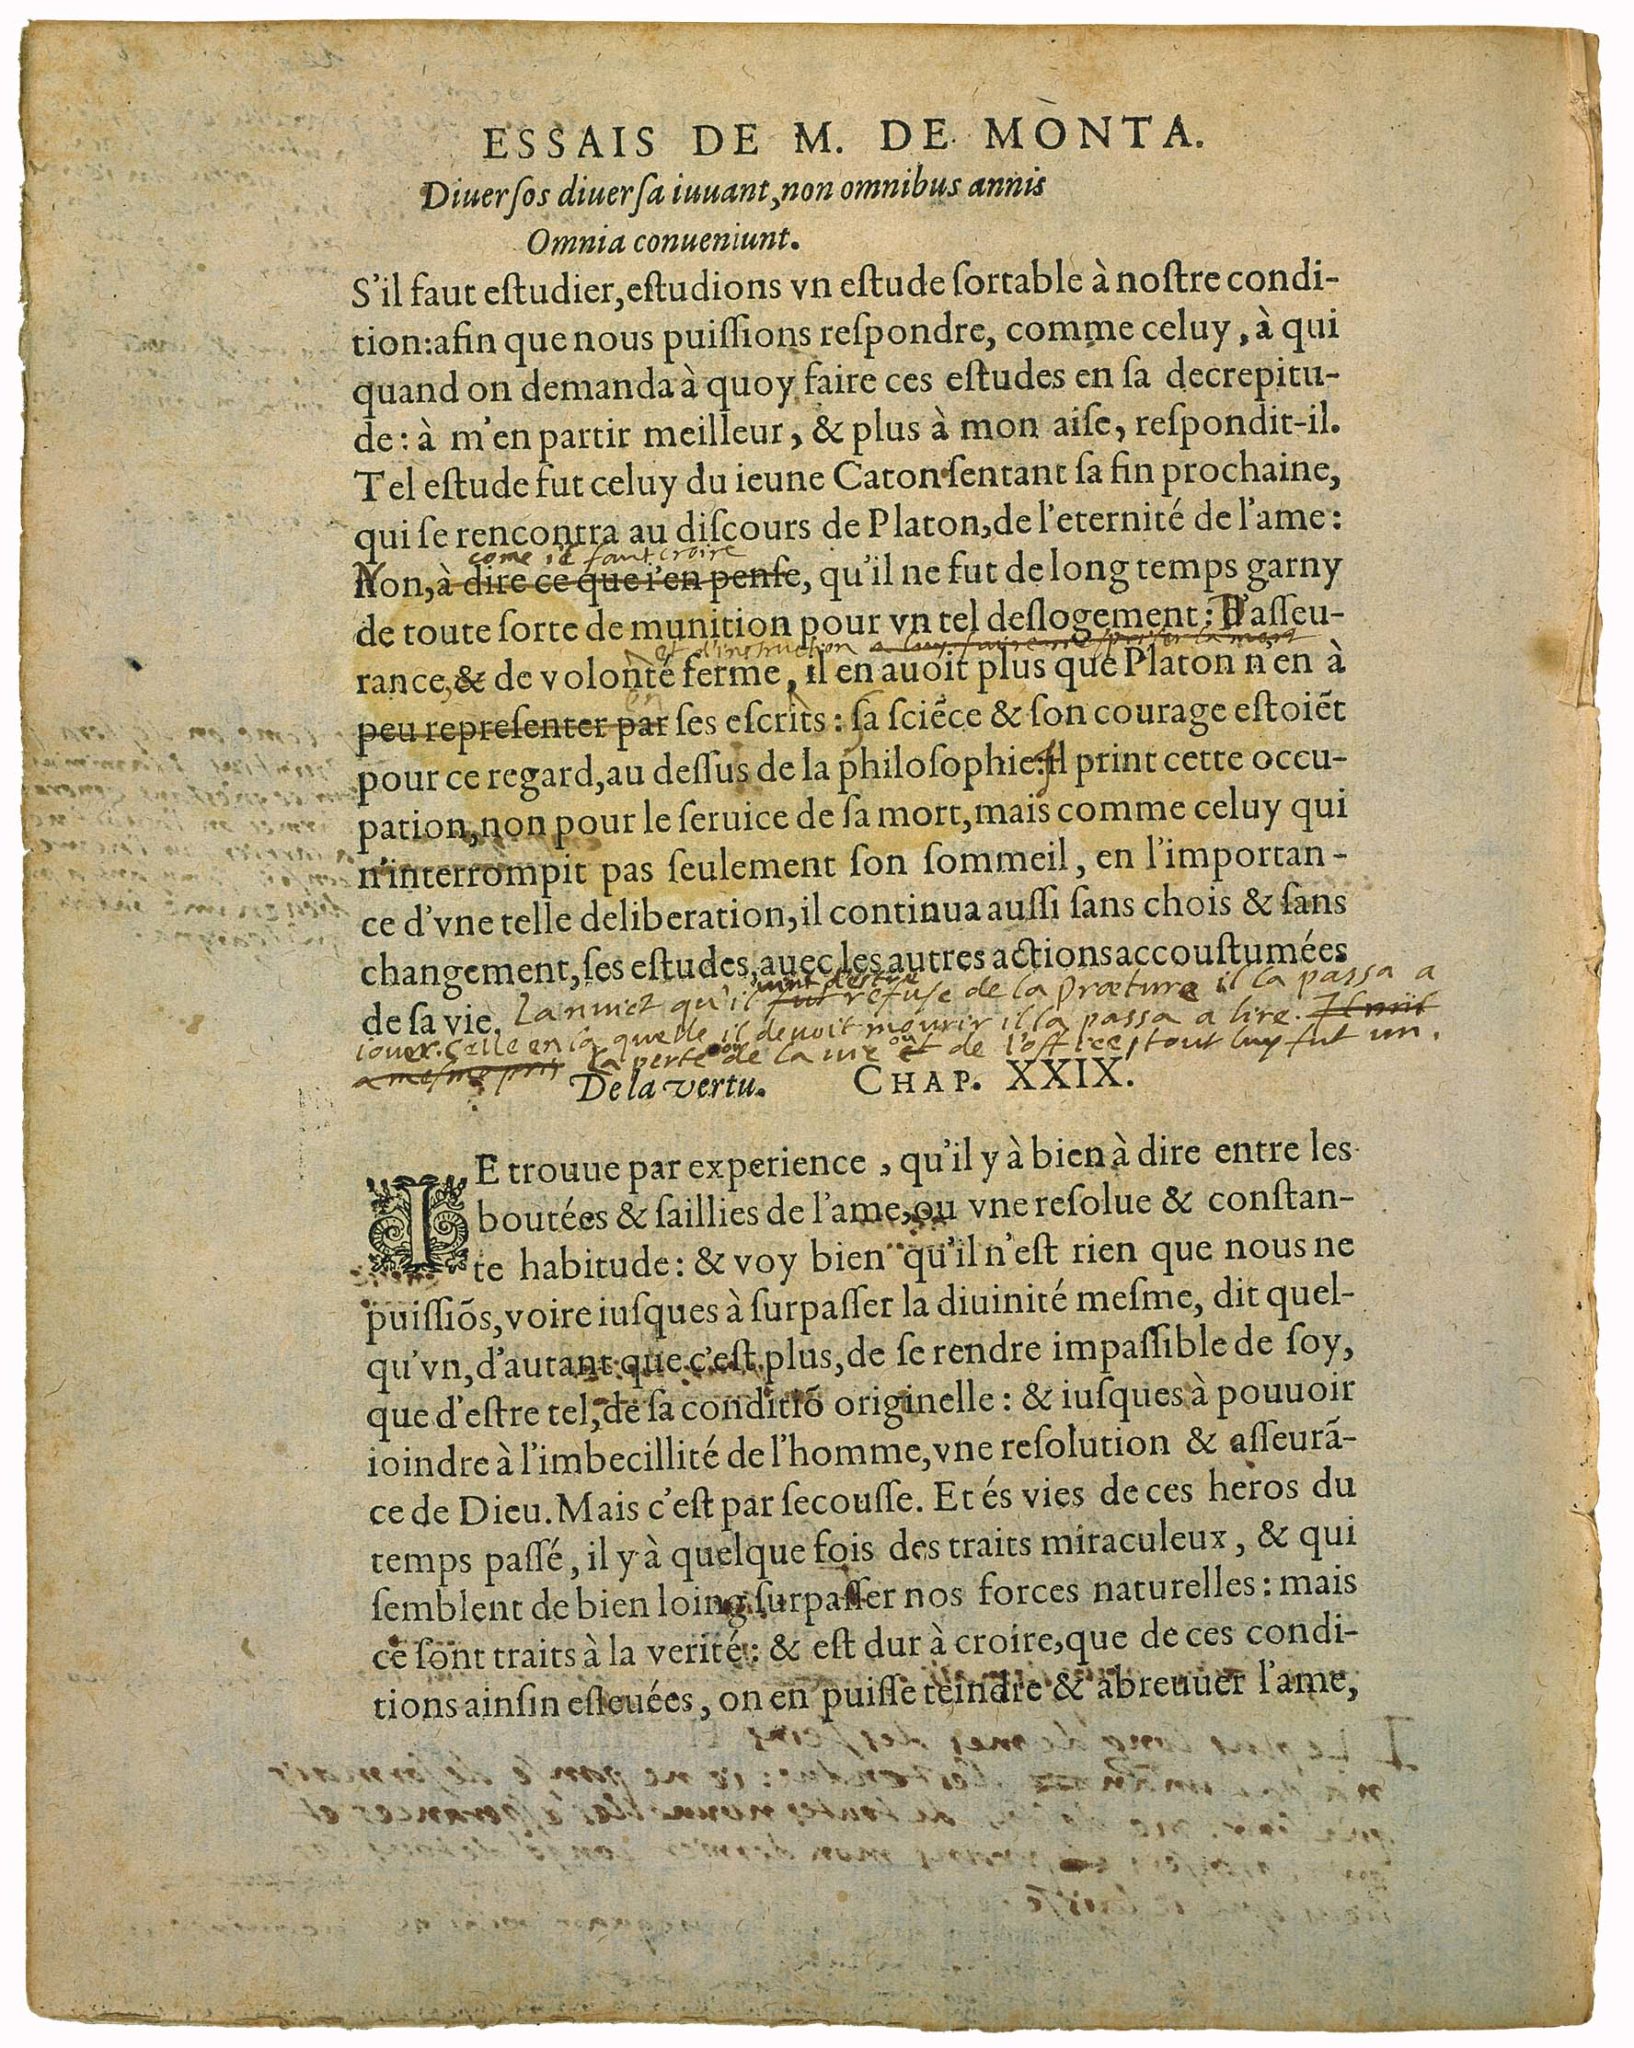 ESSAIS DE M. DE MONTA.
Diuerſos diuerſa iuuant, non omnibus annis
Omnia conueniunt.
S'il faut eſtudier, eſtudions vn eſtude ſortable à noſtre condi-
tion: afin que nous puiſſions reſpondre, comme celuy, à qui
quand on demanda à quoy faire ces eſtudes en ſa decrepitu-
de: à m'en partir meilleur, & plus à mon aiſe, reſpondit-il.
Tel eſtude fut celuy du ieune Caton ſentant ſa fin prochaine,
qui ſe rencontra au diſcours de Platon, de l'eternité de l'ame:
come il faut croire
Non, à dire ce que i'en penſe, qu'il ne fut de long temps garny
de toute ſorte de munition pour vn tel deſlogement: D'aſſeu-
et d'instruction
rance, & de volonté ferme, il en auoit plus que Platon n'en à
en
peu repreſenter par ſes eſcrits: ſa ſciẽce & ſon courage eſtoiẽt
pour ce regard, au deſſus de la philoſophie: Il print cette occu-
pation, non pour le ſeruice de ſa mort, mais comme celuy qui
n'interrompit pas ſeulement ſon ſommeil, en l'importan-
ce d'vne telle deliberation, il continua auſſi ſans chois & ſans
changement, ſes eſtudes, auec les autres actions accouſtumées
vint d'estre
de ſa vie. La nuict qu'il fut refuse de la Præture il la passa a
iouer. Celle en la quelle il devoit mourir il la passa a lire. Il
a mesme pris la perte ou de la vie ou de l'office, tout luy fut un.
De la vertu. CHAP. XXIX.
IE trouue par experience, qu'il y à bien à dire entre les
boutées & ſaillies de l'ame, ou vne reſolue & conſtan-
te habitude: & voy bien qu'il n'eſt rien que nous ne
puiſſiõs, voire iuſques à ſurpaſſer la diuinité meſme, dit quel-
qu'vn, d'autant que c'eſt plus, de ſe rendre impaſſible de ſoy,
que d'eſtre tel, de ſa conditiõ originelle: & iuſques à pouuoir
ioindre à l'imbecillité de l'homme, vne reſolution & aſſeurã-
ce de Dieu. Mais c'eſt par ſecouſſe. Et és vies de ces heros du
temps paſſé, il y à quelque fois des traits miraculeux, & qui
ſemblent de bien loing ſurpaſſer nos forces naturelles: mais
ce ſont traits à la verité: & eſt dur à croire, que de ces condi-
tions ainſin eſleuées, on en puiſſe teindre & abreuuer l'ame,